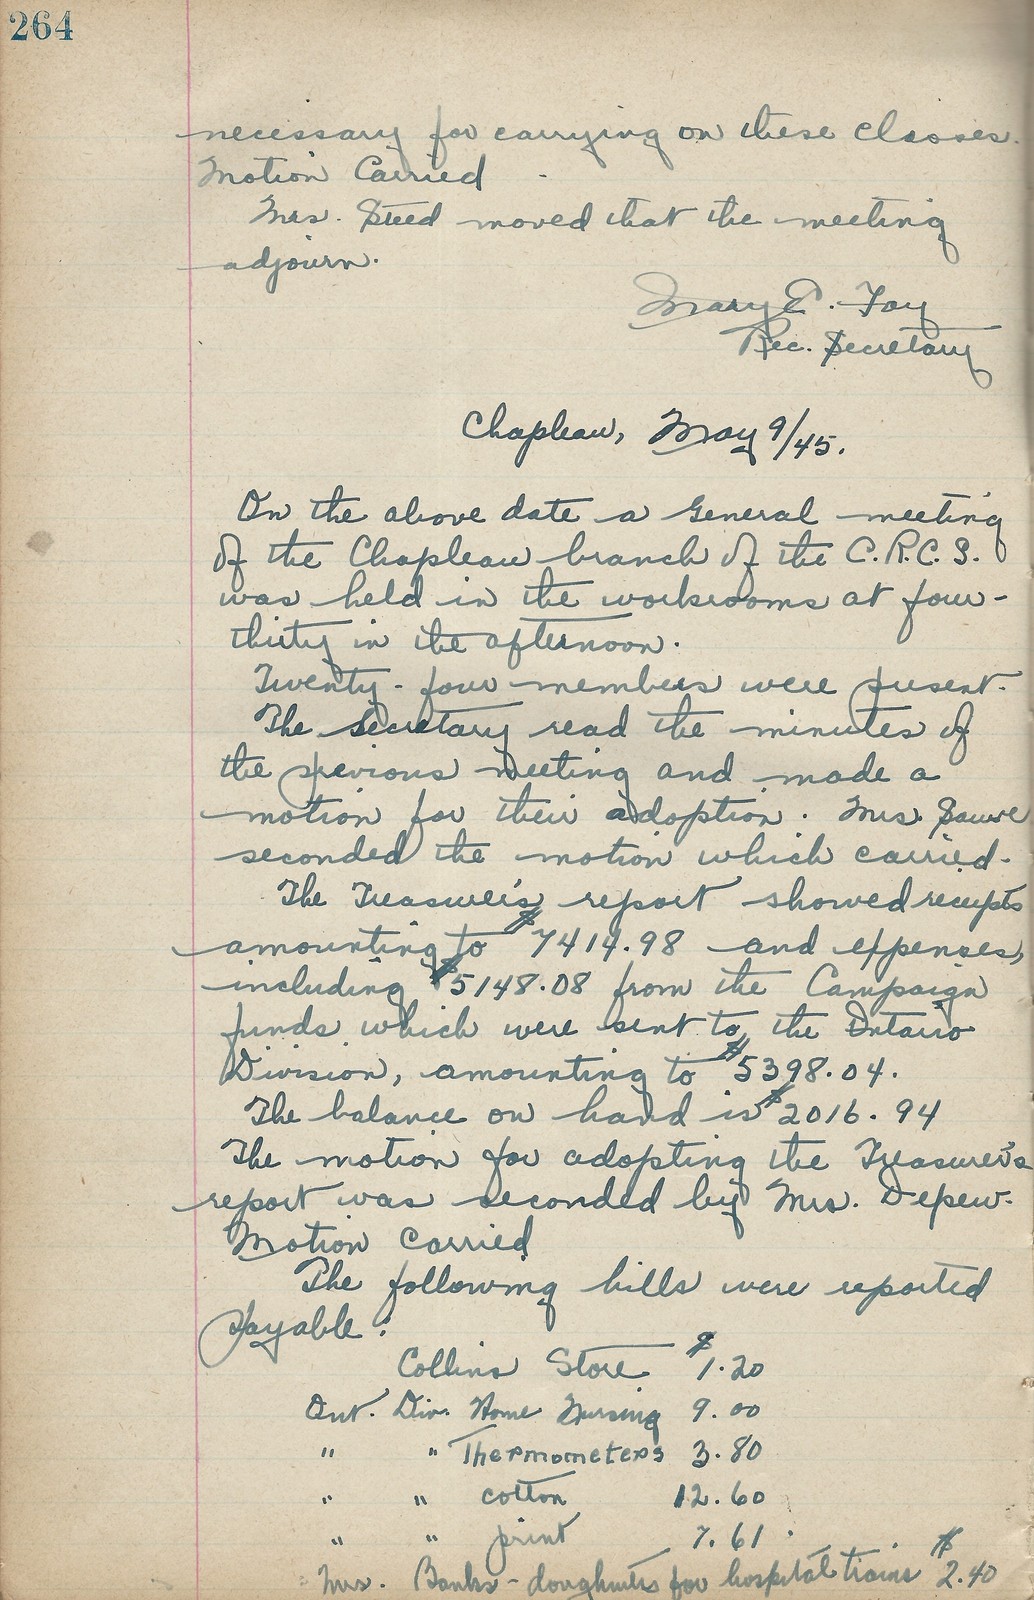 264
necessary for carrying on these classes.
Motion Carried
Mrs. Steed moved that the meeting
adjourn.
Mary E. Fay
Rec. Secretary
Chapleau, May 9/45.
On the above date a General meeting
of the Chapleau branch of the C.R.C.S.
was held in the workrooms at four-
thirty in the afternoon.
Twenty-four members were present.
The Secretary read the minutes of
the previous meeting and made a
motion for their adoption. Mrs. Sauve
seconded the motion which carried.
The Treasurer's report showed receipts
amounting to $7414.98 and expenses,
including $5148.08 from the Campaign
funds which were sent to the Ontario
Division, amounting to $5398.04.
The balance on hand is $2016.94
The motion for adopting the Treasurer's
report was seconded by Mrs. Depew.
Motion Carried
The following bills were reported
payable:
Collins Store $1.20
Ont. Div. Home Nursing 9.00
" " Thermometers 3.80
" " cotton 12.60
" " print 7.61
Mrs. Banks - doughnuts for hospital trains $2.40